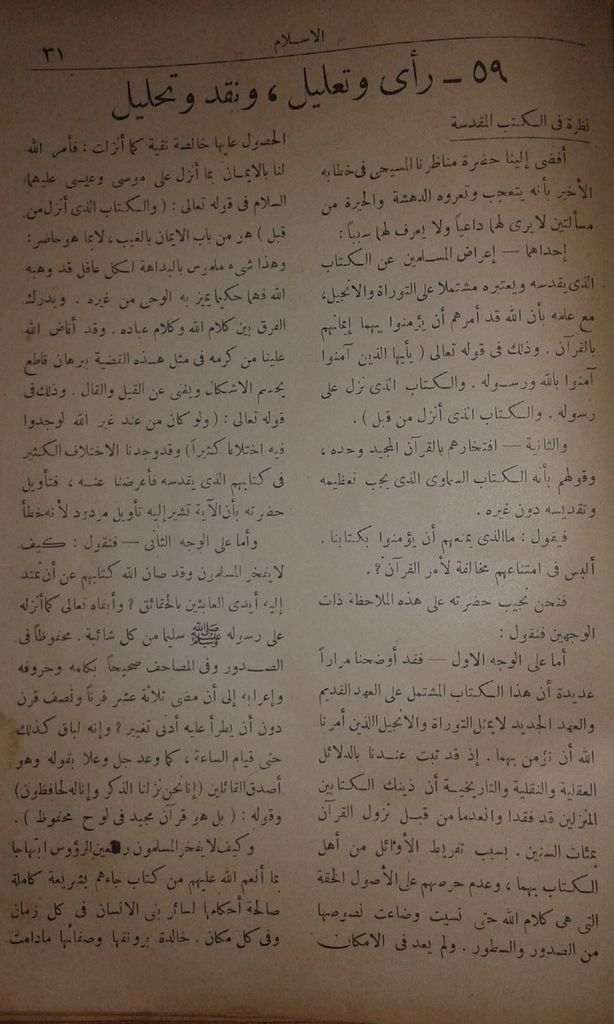 الاسلام
٣١
٥٩ – رأى وتعليل ، ونقد وتحليل
نظرة فى الكتب المقدسة
أفضى إلينا حضرة مناظرنا المسيحى فى خطابه
الأخير بأنه يتعجب وتعروه الدهشة والحيرة من
مسألتين لا يرى لهما داعياً ولا يعرف لهما سبباً :
إحداهما — إعراض المسلمين عن الكتاب
الذى يقدسه ويعتبره مشتملا على التوراة والانجيل ،
مع علمه بأن الله قد أمرهم أن يؤمنوا بهما إيمانهم
بالقرآن . وذلك فى قوله تعالى ( يأيها الذين آمنوا
آمنوا بالله ورسوله . والكتاب الذى نزل على
رسوله . والكتاب الذى أنزل من قبل ) .
والثانية — افتخارهم بالقرآن المجيد وحده ،
وقولهم بأنه الكتاب السماوى الذى يجب تعظيمه
وتقديسه دون غيره .
فيقول : ما الذى يمنعهم أن يؤمنوا بكتابنا .
أليس فى امتناعهم مخالفة لأمر القرآن ? .
فنحن نجيب حضرته على هذه الملاحظة ذات
الوجهين فنقول :
أما على الوجه الاول — فقد أوضحنا مراراً
عديدة أن هذا الكتاب المشتمل على العهد القديم
والعهد الجديد لا يمثل التوراة والانجيل اللذين أمرنا
الله أن نؤمن بهما . إذ قد ثبت عندنا بالدلائل
العقلية والنقلية والتاريخية أن ذينك الكتابين
المنزلين قد فقدا وانعدما من قبل نزول القرآن
بمئات السنين . بسبب تفريط الأوائل من أهل
الكتاب بهما ، وعدم حرصهم على الأصول الحقة
التى هى كلام الله حتى نسيت وضاعت نصوصها
من الصدور والسطور . ولم يعد فى الامكان
الحصول عليها خالصة نقية كما أنزلت : فأمر الله
لنا بالايمان بما أنزل على موسى وعيسى عليهما
السلام فى قوله تعالى : ( والكتاب الذى أنزل من
قبل ) هو من باب الايمان بالغيب ، لا بما هو حاضر :
وهذا شىء ملموس بالبداهة لكل عاقل قد وهبه
الله فهما حكيما يميز به الوحى من غيره . ويدرك
الفرق بين كلام الله وكلام عباده . وقد أفاض الله
علينا من كرمه فى مثل هذه القضية ببرهان قاطع
يحسم الاشكال ويغنى عن القيل والقال . وذلك فى
قوله تعالى : ( ولو كان من عند غير الله لوجدوا
فيه اختلافا كثيراً ) وقد وجدنا الاختلاف الكثير
فى كتابهم الذى يقدسه فأعرضنا عنه ، فتأويل
حضرته بأن الآية تشير إليه تأويل مردود لأنه خطأ
وأما على الوجه الثانى — فنقول : كيف
لا يفخر المسلمون وقد صان الله كتابهم عن أن تمتد
إليه أيدى العابثين بالحقائق ? وأبقاه تعالى كما أنزله
على رسوله ﷺ سليما من كل شائبة . محفوظاً فى
الصدور وفى المصاحف صحيحاً بكلمه وحروفه
وإعرابه إلى أن مضى ثلاثة عشر قرناً ونصف قرن
دون أن يطرأ عليه أدنى تغيير ? وإنه لباق كذلك
حتى قيام الساعة ، كما وعد جل وعلا بقوله وهو
أصدق القائلين ( إنا نحن نزلنا الذكر وإنا له لحافظون )
وقوله : ( بل هو قرآن مجيد فى لوح محفوظ ) .
وكيف لا يفخر المسلمون الرؤوس ابتهاجا
بما أنعم الله عليهم من كتاب جاءهم بشريعة كاملة
صالحة أحكامها لسائر بنى الانسان فى كل زمان
وفى كل مكان . خالدة برونقها وصفائها مادامت